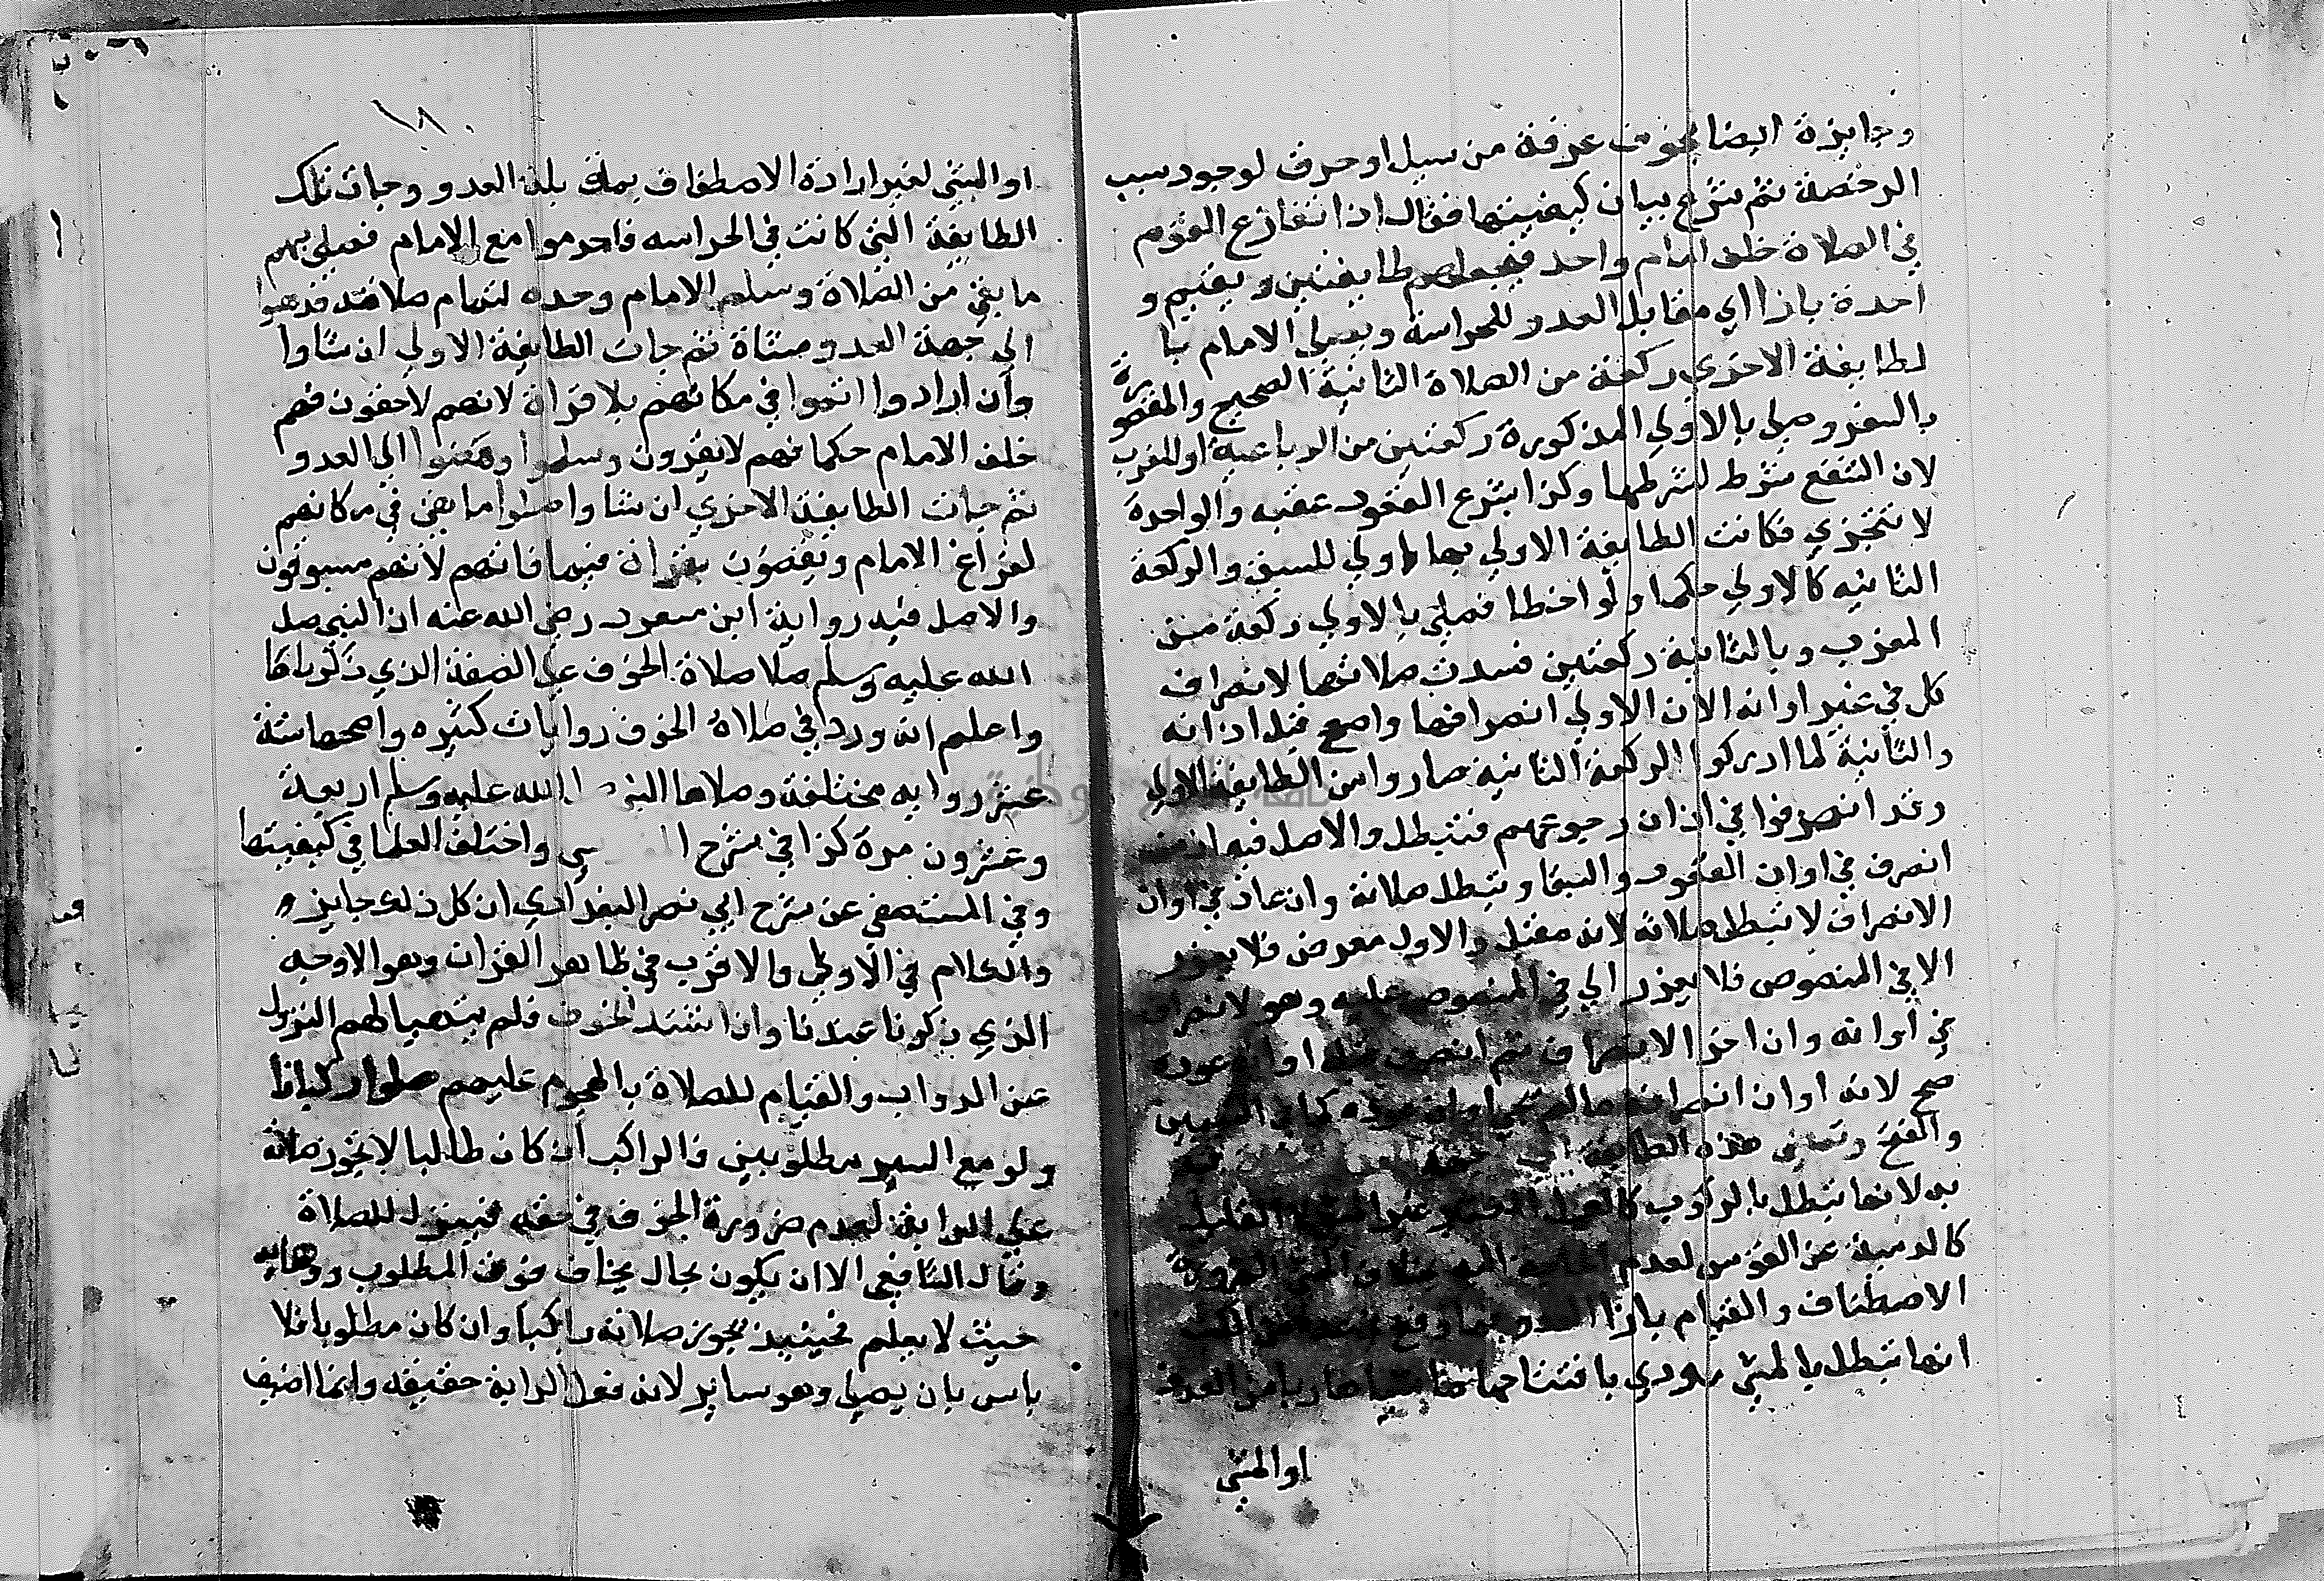 وجايزة ايضا بخوف غرقة من سيل او حرق لوجود سبب
الرخصة ثم شرع ببيان كيفيتها فقال اذا تنازع القوم
في الصلاة خلف امام واحد فيجعلهم طايفتين ويقيم و
احدة بازا اي مقابل العدو للحراسة ويصلي الامام با
لطايفة الاخري ركعة من الصلاة الثانية الصحيح والمقصورة
بالسفر وصلي بالاولي المذكورة ركعتين من الرباعية او المغرب
لان الشفع شرط لشرطها وكذا يشرع القعود عقبه والواحدة
لا تتجزي فكانت الطايفة الاولي بها اولي للسبق والركعة
الثانيه كالاولي حكما ولو اخطا فصلي بالاولي ركعة من
المغرب وبالثانية ركعتين فسدت صلاتهما لانصراف
كل في غير اوانه الان الاولي انصرافها واضح قبل اذانه
والثانية لما ادركوا الركعة الثانية صاروا من الطايفة الاولي
وقد انصرفوا في اذان رجوعهم فتبطل والاصل فيه ان من
انصرف في اوان العود والبقا وتبطل صلاته وان عاد في اوان
الانصراف لا تبطل صلاته لانه مقبل والاول معرض فلا يعذر
الا في المنصوص فلا يعذر الي في المنصوص عليه وهو لانصراف
في اوانه وان اخر الانصراف ثم انصرف قبل اوان عوده
صح لانه اوان انصرافه مالم يجي اوان عوده
هذه الطايفة
به لانها تبطل بالركوب القليل
كالرمية عن القوس لعدم
الاصطفاف والقيام بازا العدو
انها تبطل بالمشي باقتتاحها العدو
او المشي
١٨
او المشي لغير ارادة الاصطفاف بمقابلة العدو وجات تلك
الطايفة التي كانت في الحراسه فاحرموا مع الامام فصلي بهم
ما بقي من الصلاة وسلم الامام وحده لتمام صلاته فذهبوا
الي جهة العدو مشاة ثم جات الطايفة الاولي ان شاوا
وان ارادوا اتموا في مكانهم بلا قراة لانهم لاحقون فهم
خلف الامام حكما فهم لا يقرون وسلموا ومضوا الي العدو
ثم جات الطايفة الاخري ان شاوا صلوا ما بقي في مكانهم
لفراغ الامام ويقضون بقراة فيما فاتهم لانهم مسبوقون
والاصل فيه رواية ابن مسعود رضي الله عنه ان النبي صل
الله عليه وسلم صلا صلاة الخوف علي الصفة الذي ذكرناها
واعلم انه ورد في صلاة الخوف روايات كثيره واصحها ستة
عشر روايه مختلفة وصلاها النبي الله عليه وسلم اربعة
وعشرون مرة كذا في شرح سي واختلف العلما في كيفيتها
وفي المستصفي عن شرح ابي نصر البغدادي ان كل ذلك جايز و
والكلام في الاولي والاقرب في ظاهر القران وهو الاوجه
الذي ذكرنا عندنا وان اشتد الخوف فلم يتهيا لهم النزول
عن الدواب والقيام للصلاة بالهجوم عليهم صلوا ركبانا
ولو مع السير مطلوبين فالراكب ان كان طالبا لا تجوز صلاته
علي الدابة لعدم ضرورة الخوف في حقه فينزل للصلاة
وقال الشافعي الا ان يكون بحال يخاف فوت المطلوب وذهابه
حيث لا يعلم فحينيذ تجوز صلاته راكبا وان كان مطلوبا فلا
باس بان يصلي وهو ساير لانه فعل الدابة حقيقه وانما اضيف